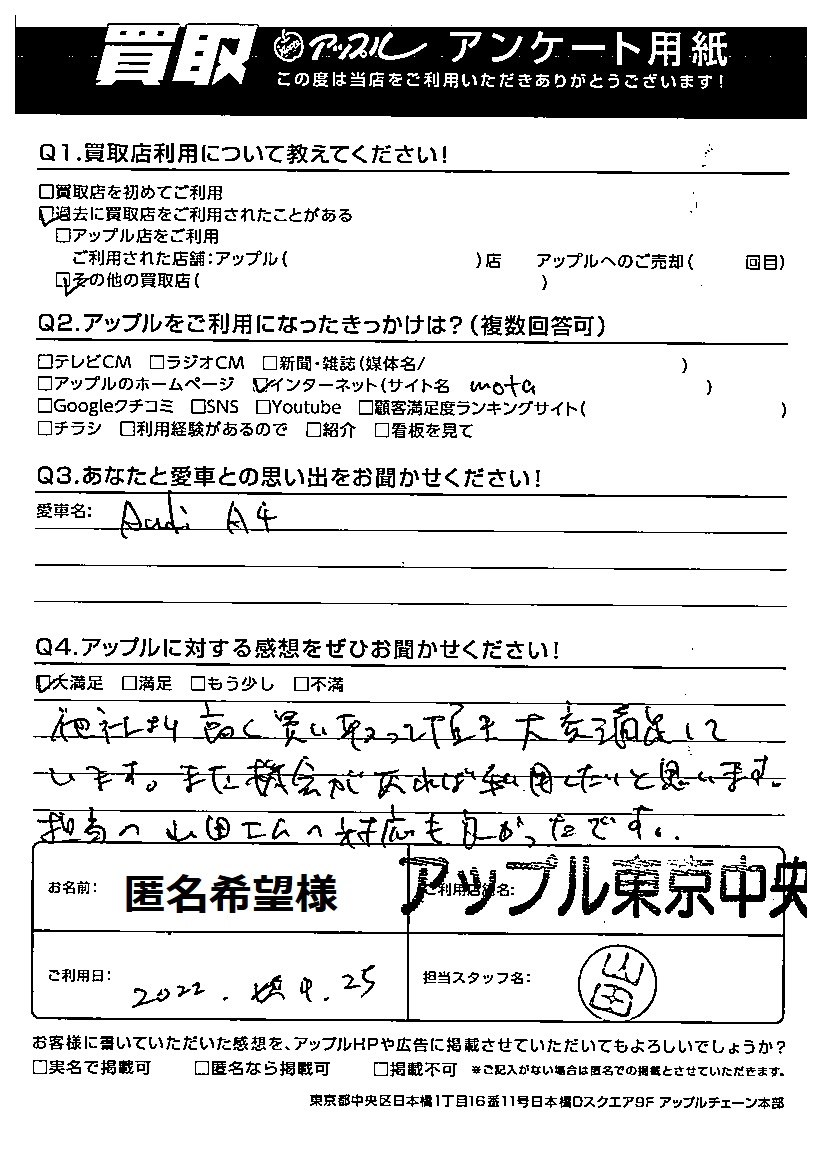 買取 アップル アンケート用紙
この度は当店をご利用いただきありがとうございます!
Q1.買取店利用について教えてください!
□買取店を初めてご利用
☑過去に買取店をご利用されたことがある
□アップル店をご利用
ご利用された店舗:アップル( )店 アップルへのご売却( 回目)
☑その他の買取店( )
Q2.アップルをご利用になったきっかけは?(複数回答可)
□テレビCM □ラジオCM □新聞・雑誌(媒体名/ )
□アップルのホームページ ☑インターネット(サイト名 mota )
□Googleクチコミ □SNS □Youtube □顧客満足度ランキングサイト( )
□チラシ □利用経験があるので □紹介 □看板を見て
Q3.あなたと愛車との思い出をお聞かせください!
愛車名: Audi A4
Q4.アップルに対する感想をぜひお聞かせください!
☑大満足 □満足 □もう少し □不満
他社より高く買い取って頂き大変満足して
います。また機会があれば利用したいと思います。
担当の山田さんの対応も良かったです。
お名前: 匿名希望様 ご利用店舗名: アップル東京中央
ご利用日: 2022. 9. 25 担当スタッフ名: 山田
お客様に書いていただいた感想を、アップルHPや広告に掲載させていただいてもよろしいでしょうか?
□実名で掲載可 □匿名なら掲載可 □掲載不可 ※ご記入がない場合は匿名での掲載とさせていただきます。
東京都中央区日本橋1丁目16番11号日本橋Dスクエア9F アップルチェーン本部